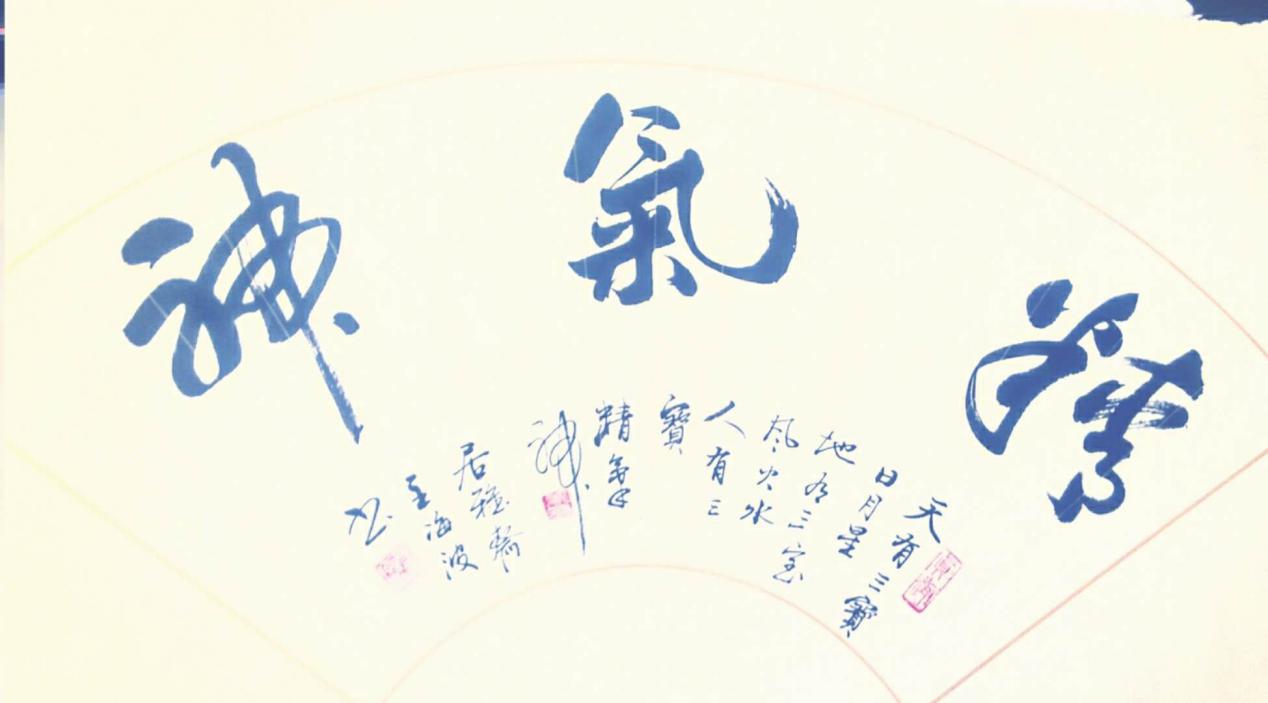 精氣神
天有三寶
日月星
地有三宝
風火水
人有三
寶
精氣
神
居雅齋
王海波
书